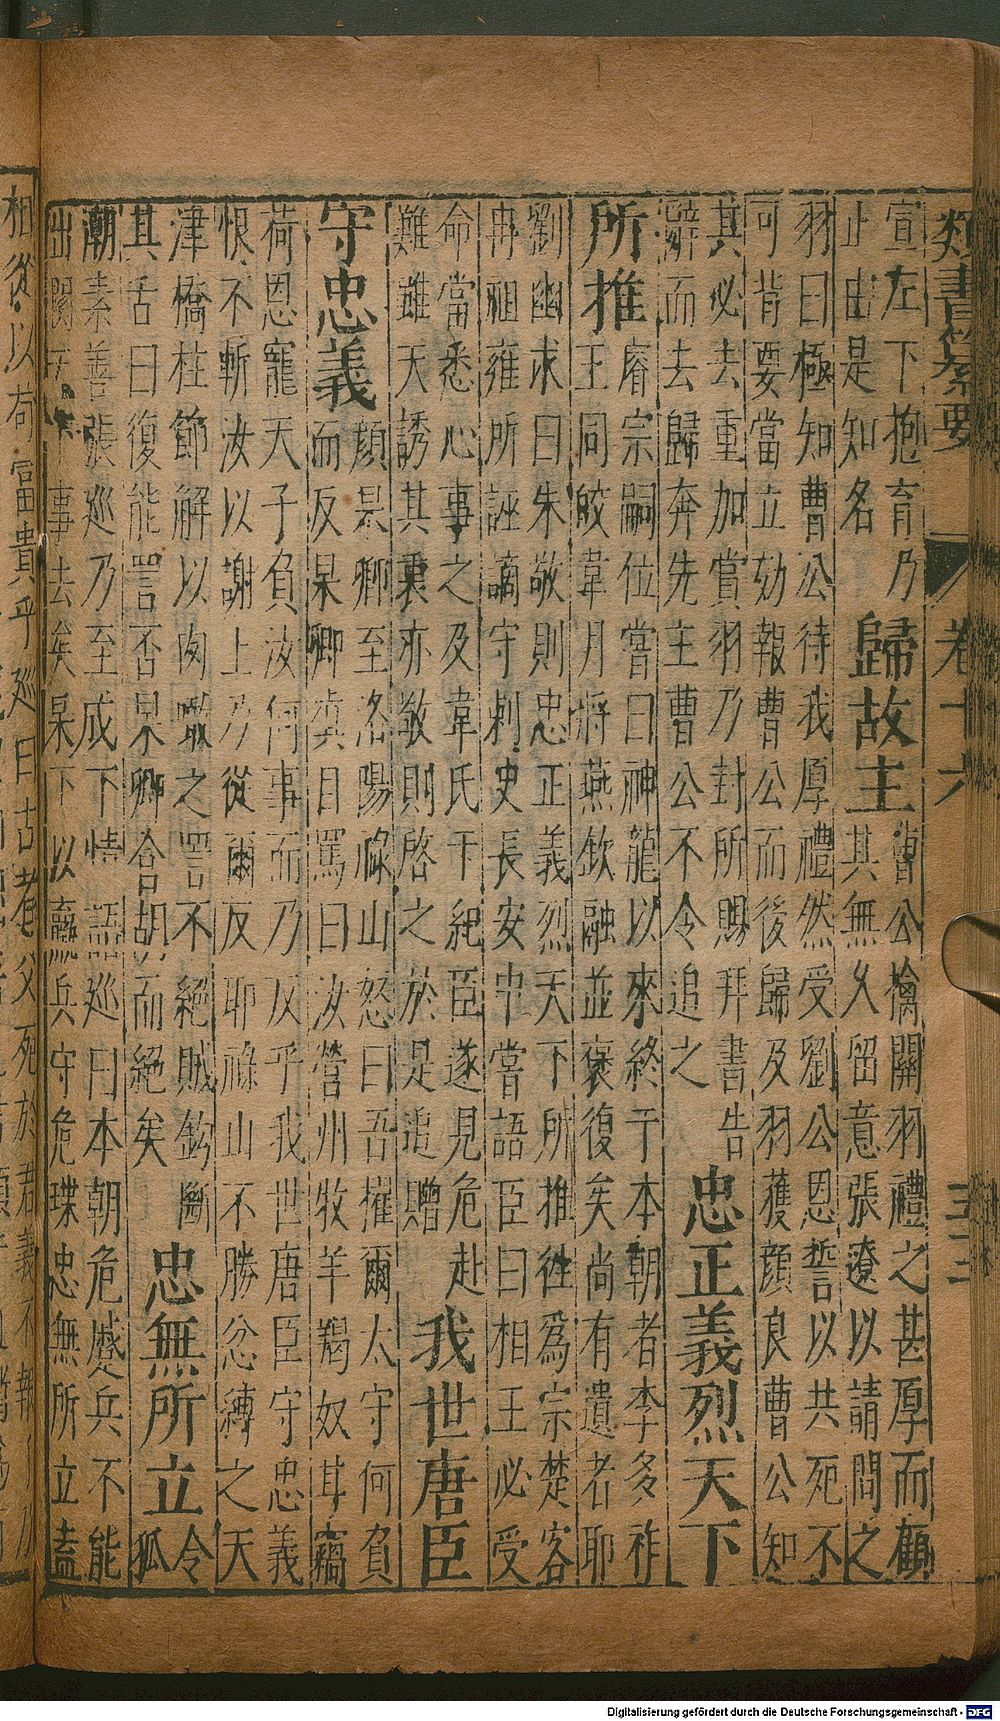 類書纂要　卷十六
宣左下抱育乃
止由是知名
歸故主
曹公擒關羽禮之甚厚而顧
其無久留意張遼以請問之
羽曰極知曹公待我厚禮然受劉公恩誓以共死不
可背要當立効報曹公而後歸及羽獲顏良曹公知
其必去重加賞羽乃封所賜拜書告
辭而去歸奔先主曹公不令追之
忠正義烈天下
所推
睿宗嗣位嘗曰神龍以來終于本朝者李多祚
王同皎韋月將燕欽融並褒復矣尚有遺者耶
劉幽求曰朱敬則忠正義烈天下所推往為宗楚客
冉祖雍所誣謫守刺史長安中嘗語臣曰相王必受
命當悉心事之及韋氏干紀臣遂見危赴
難雖天誘其衷亦敬則啓之於是追贈
我世唐臣
守忠義
顏杲卿至洛陽祿山怒曰吾擢爾太守何負
而反杲卿瞋目罵曰汝營州牧羊羯奴耳竊
荷恩寵天子負汝何事而乃反乎我世唐臣守忠義
恨不斬汝以謝上乃從爾反耶祿山不勝忿縛之天
津橋柱節解以肉噉之罵不絕賊鈎斷
其舌曰復能罵否杲卿含胡而絕矣
忠無所立
令
狐
潮素善張巡乃至成下情語巡曰本朝危蹙兵不能
出關事去矣杲下以羸兵守危堞忠無所立盍
相從以苟富貴乎巡曰古者父死於君義不報
Digitalisierung gefördert durch die Deutsche Forschungsgemeinschaft - DFG